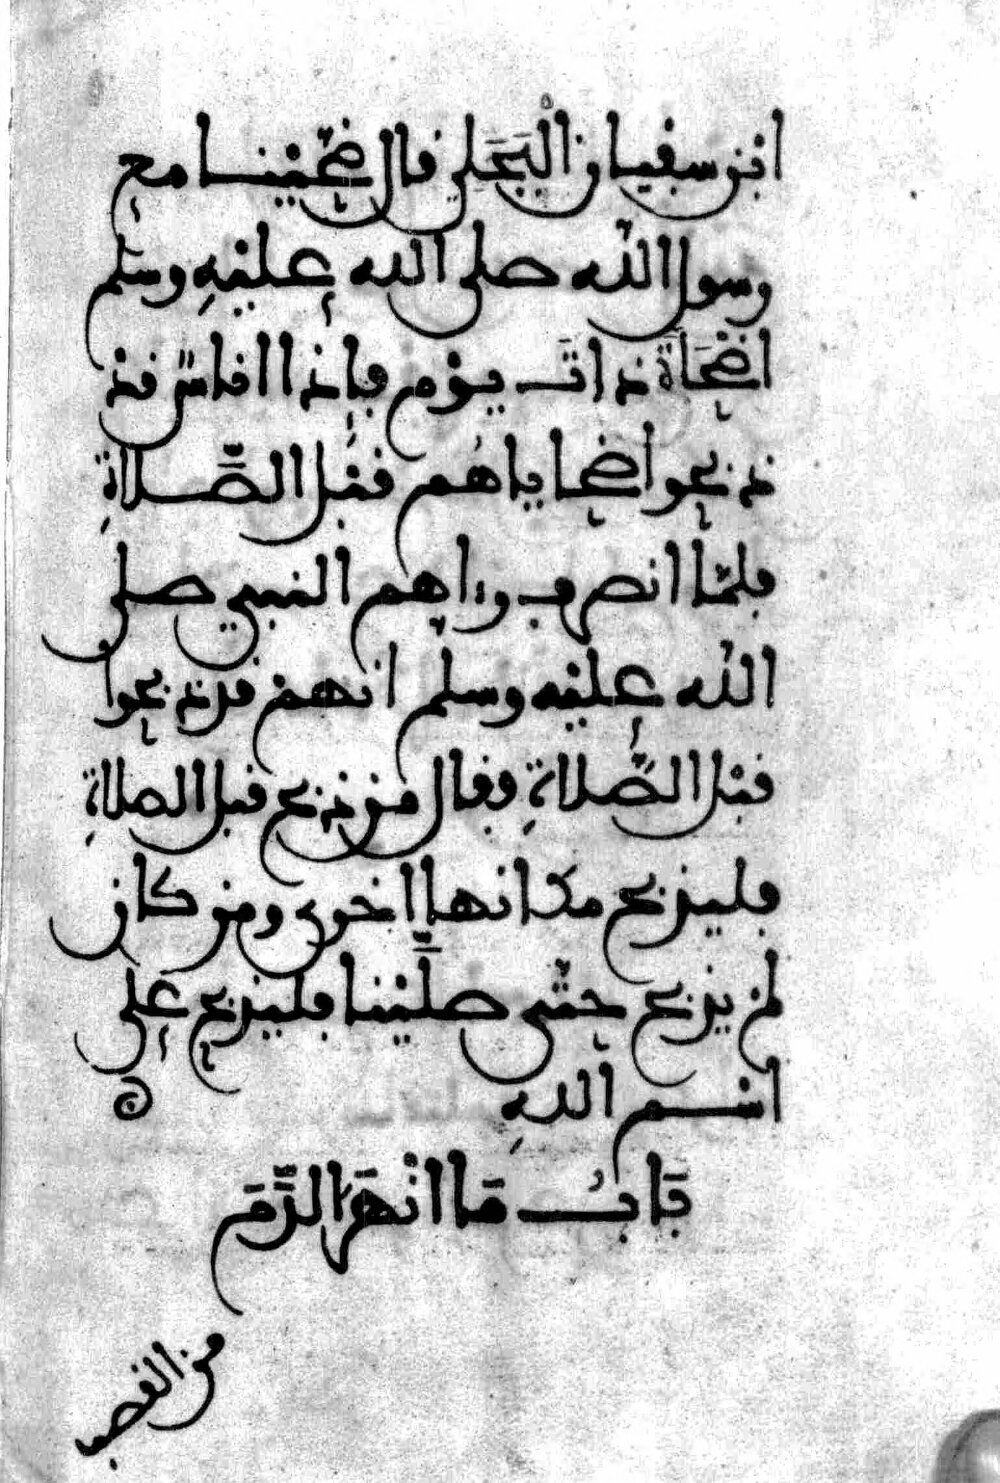 ابن سفيان البَجَلي قال ضَحّينا مع
رسول الله صلى الله عليه وسلم
اضْحَاةً ذاتَ يوْم فإذا اناسٌ قد
ذبحوا ضحاياهم قبل الصَّلاة
فلمّا انصرف رءاهم النبي صلى
الله عليه وسلم انهم قد ذبحوا
قبْل الصَّلاة فقال من ذبح قبل الصلاةِ
فليذبح مكانها اخرى ومن كان
لم يذبح حتّى صلّيْنا فليذبح على
اسْم اللهِ
بَابُ مَا انْهَرَ الدَّمَ
من القصب